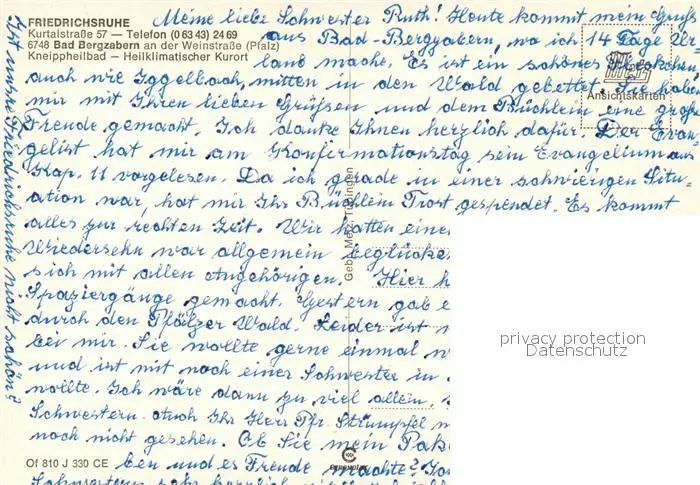 FRIEDRICHSRUHE
Kurtalstraße 57 — Telefon (0 63 43) 24 69
6748 Bad Bergzabern an der Weinstraße (Pfalz)
Kneippheilbad — Heilklimatischer Kurort
Meine liebe Schwester Ruth! Heute kommt mein Gruß
aus Bad-Bergzabern, wo ich 14 Tage Ur
laub mache. Es ist ein schönes Fleckchen,
auch wie Iggelbach, mitten in den Wald gebettet. Sie haben
mir mit Ihren lieben Grüßen und dem Büchlein eine große
Freude gemacht. Ich danke Ihnen herzlich dafür. Der Evan-
gelist hat mir am Konfirmationstag sein Evangelium aus
Kap. 11 vorgelesen. Da ich grade in einer schwierigen Situ-
ation war, hat mir Ihr Büchlein Trost gespendet. Es kommt
alles zur rechten Zeit. Wir hatten eine
Wiedersehn war allgemein beglücke
sich mit allen Angehörigen. Hier h
Spaziergänge gemacht. Gestern gab e
durch den Pfälzer Wald. Leider ist
bei mir. Sie wollte gerne einmal
und ist mit noch einer Schwester in
wollte. Ich wäre dann zu viel allein,
Schwestern. Auch Ihr Herr Pfr Strümpfel
noch nicht gesehen. Ob Sie mein Pak
ben und es Freude machte?
Schwestern sehr herzlich
Ist unsre Friedrichsruhe nicht schön?
Metz
Ansichtskarten
Gebr. Metz, Tübingen
Of 810 J 330 CE
privacy protection
Datenschutz